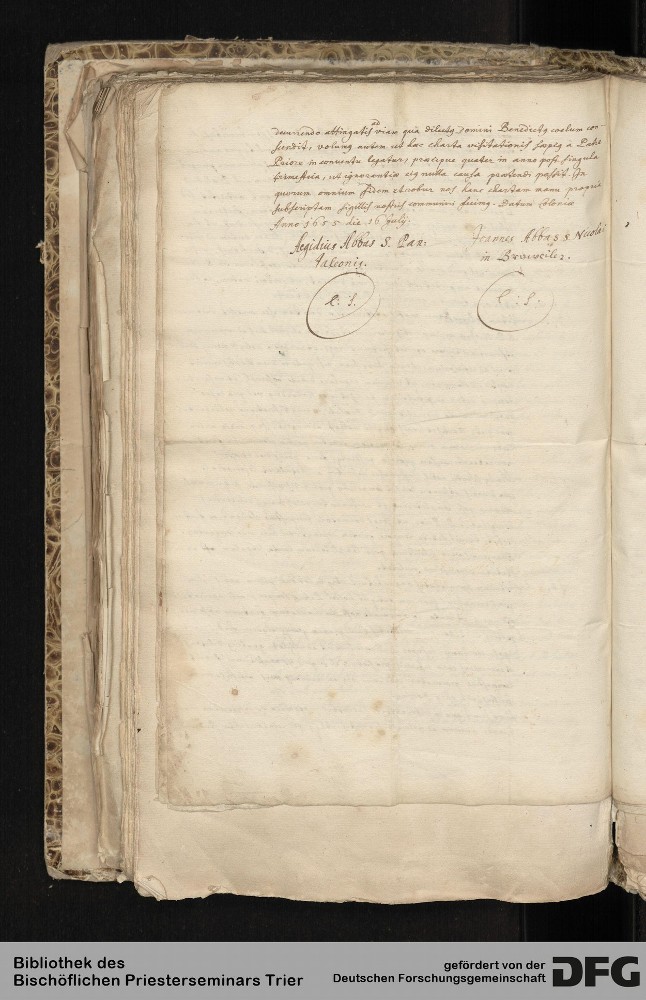 ad
decurriendo attingatis viam qua dilectus Domini Benedictus coelum con-
scendit, volumus autem ut haec charta visitationis saepius a Patre
Priore in conventu legatur, praecipue quater in anno post singula
trimestria, ut ignorantiae eius nulla causa praetendi possit. In
quorum omnium fidem et robur nos hanc chartam manu propria
subscriptam sigillis nostris communiri fecimus. Datum Coloniae
Anno 1655 die 16 July.
Aegidius Abbas S. Pan-
taleonis.
Joannes Abbas S. Nicolai
in Brauweiler.
L: S.
L: S.
Bibliothek des
Bischöflichen Priesterseminars Trier
gefördert von der
Deutschen Forschungsgemeinschaft
DFG